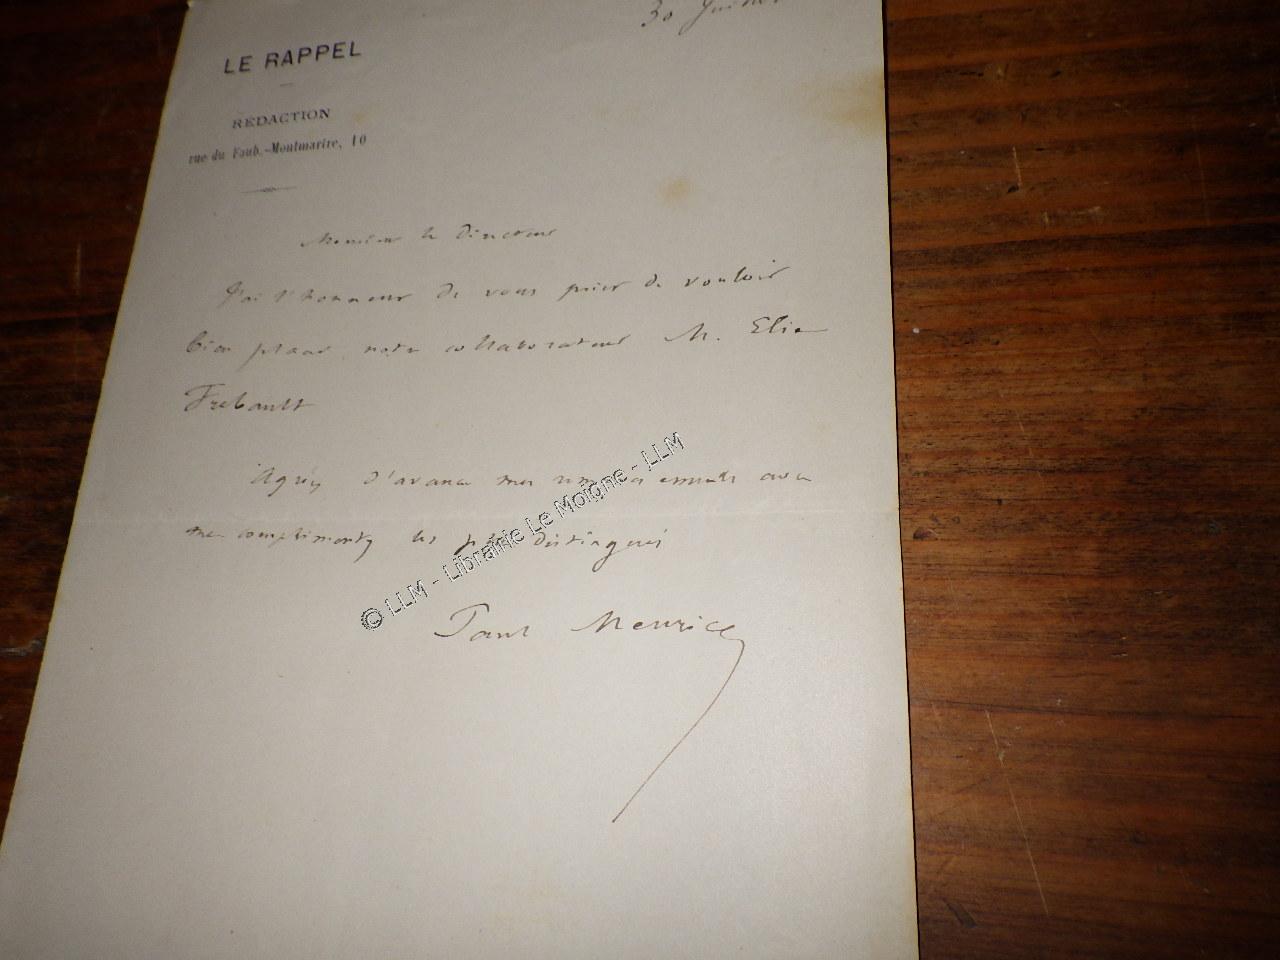 30 Juillet
LE RAPPEL
RÉDACTION
rue du Faub.-Montmartre, 10
Monsieur le Directeur
J'ai l'honneur de vous prier de vouloir
bien placer notre collaborateur M. Elie
Frebault
Agréez d'avance mes remerciements avec
mes compliments les plus distingués
Paul Meurice
© LLM - Librairie Le Moigne - LLM